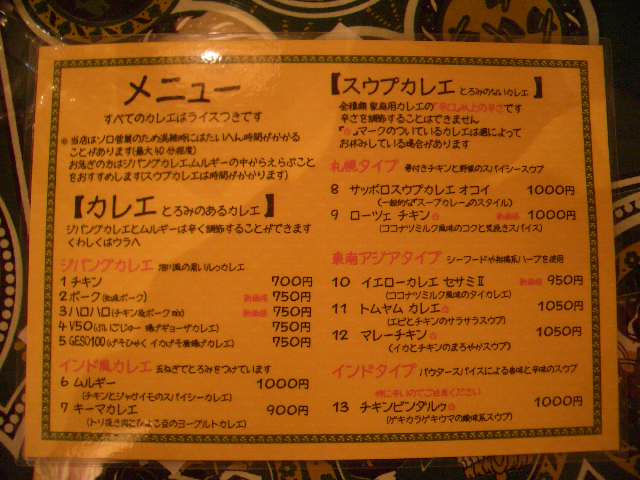 メニュー
すべてのカレエはライスつきです
※当店はソロ営業のため混雑時にはたいへん時間がかかる
ことがあります(最大40分程度)
お急ぎの方はジパングカレエ、ムルギーの中からえらぶこと
をおすすめします(スウプカレエは時間がかかります)
【カレエ とろみのあるカレエ】
ジパングカレエとムルギーは辛く調節することができます
くわしくはウラへ
ジパングカレエ 黒いルゥカレエ
1 チキン 700円
2 ポーク 新価格 750円
3 ハロハロ (チキン&ポークmix) 新価格 750円
4 V50 (揚げギョーザカレエ) 750円
5 GESO100 (げそひゃく イカげそ唐揚げカレエ) 750円
インド風カレエ 玉ねぎでとろみをつけています
6 ムルギー 1000円
(チキンとジャガイモのスパイシーカレエ)
7 キーマカレエ 900円
(トリ挽き肉とひよこ豆のヨーグルトカレエ)
【スウプカレエ とろみのないカレエ】
全種類 家庭用カレエの"辛口以上の辛さ"です
辛さを調節することはできません
"☆"マークのついているカレエは週によって
お休みしている場合があります
札幌タイプ 骨付きチキンと野菜のスパイシースウプ
8 サッポロスウプカレエ オコイ 1000円
(一般的な"スープカレー"のスタイル)
9 ローツェ チキン☆ 新価格 1000円
(ココナツミルク風味のコクと荒挽きスパイス)
東南アジアタイプ シーフードや柑橘系ハーブを使用
10 イエローカレエ セサミⅡ 新価格 950円
(ココナツミルク風味のタイカレエ)
11 トムヤム カレエ☆ 1050円
(エビとチキンのサラサラスウプ)
12 マレーチキン☆ 1050円
(イカとチキンのまろやかスウプ)
インドタイプ パウダースパイスによる香味と辛味のスウプ
特に辛いのでご注意ください
13 チキンビンダルゥ☆ 1000円
(ゲキカラゲキウマの酸味系スウプ)